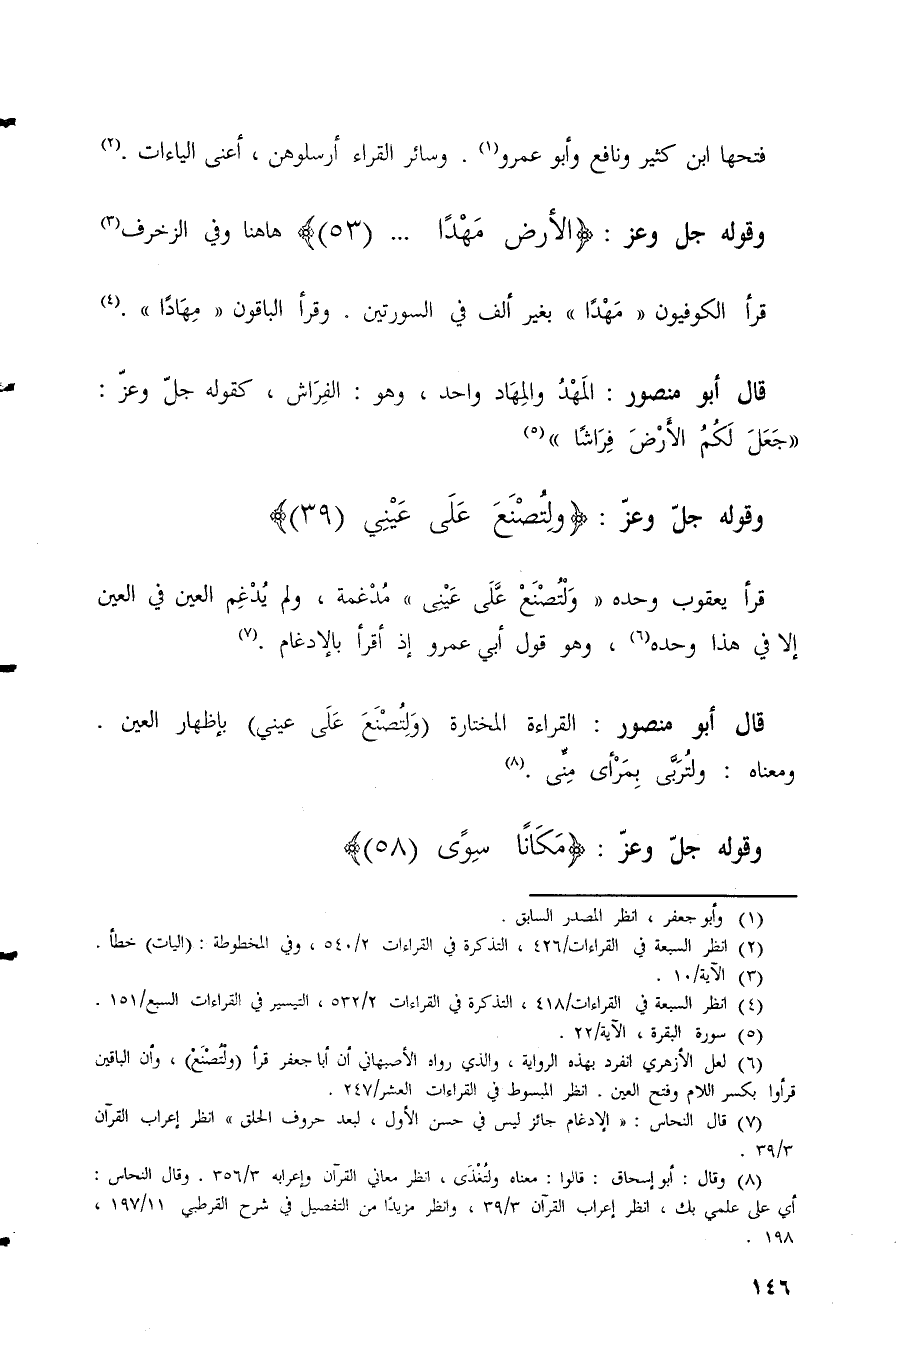 فتحها ابن كثير ونافع وأبو عمرو(١) . وسائر القراء أرسلوهن ، أعنى الياءات .(٢)
وقوله جل وعز : ﴿الأرض مَهْدًا ... (٥٣)﴾ هاهنا وفي الزخرف(٣)
قرأ الكوفيون « مَهْدًا » بغير ألف في السورتين . وقرأ الباقون « مِهَادًا » .(٤)
قال أبو منصور : المَهْدُ والمِهَاد واحد ، وهو : الفِرَاش ، كقوله جلّ وعزّ :
«جَعَلَ لَكُمُ الأَرْضَ فِرَاشًا »(٥)
وقوله جلّ وعزّ : ﴿ولِتُصْنَعَ عَلَى عَيْنِي (٣٩)﴾
قرأ يعقوب وحده « وَلْتُصْنَعْ عَّلَى عَيْنِى » مُدْغمة ، ولم يُدْغِم العين في العين
إلا في هذا وحده(٦) ، وهو قول أبي عمرو إذ أقرأ بالإدغام .(٧)
قال أبو منصور : القراءة المختارة (وَلِتُصْنَعَ عَلَى عيني) بإظهار العين .
ومعناه : ولتُرَبَّى بِمَرْأى مِنِّى .(٨)
وقوله جلّ وعزّ : ﴿مَكَانًا سِوًى (٥٨)﴾
(١) وأبو جعفر ، انظر المصدر السابق .
(٢) انظر السبعة في القراءات/٤٢٦ ، التذكرة في القراءات ٥٤٠/٢ ، وفي المخطوطة : (اليات) خطأ .
(٣) الآية/١٠ .
(٤) انظر السبعة في القراءات/٤١٨ ، التذكرة في القراءات ٥٣٢/٢ ، التيسير في القراءات السبع/١٥١ .
(٥) سورة البقرة ، الآية/٢٢ .
(٦) لعل الأزهري انفرد بهذه الرواية ، والذي رواه الأصبهاني أن أبا جعفر قرأ (ولْتُصْنَعْ) ، وأن الباقين
قرأوا بكسر اللام وفتح العين . انظر المبسوط في القراءات العشر/٢٤٧ .
(٧) قال النحاس : « الإدغام جائز ليس في حسن الأول ، لبعد حروف الحلق » انظر إعراب القرآن
٣٩/٣ .
(٨) وقال : أبو إسحاق : قالوا : معناه ولتُغْذَى ، انظر معاني القرآن وإعرابه ٣٥٦/٣ . وقال النحاس :
أي على علمي بك ، انظر إعراب القرآن ٣٩/٣ ، وانظر مزيدًا من التفصيل في شرح القرطبي ١٩٧/١١ ،
١٩٨ .
١٤٦